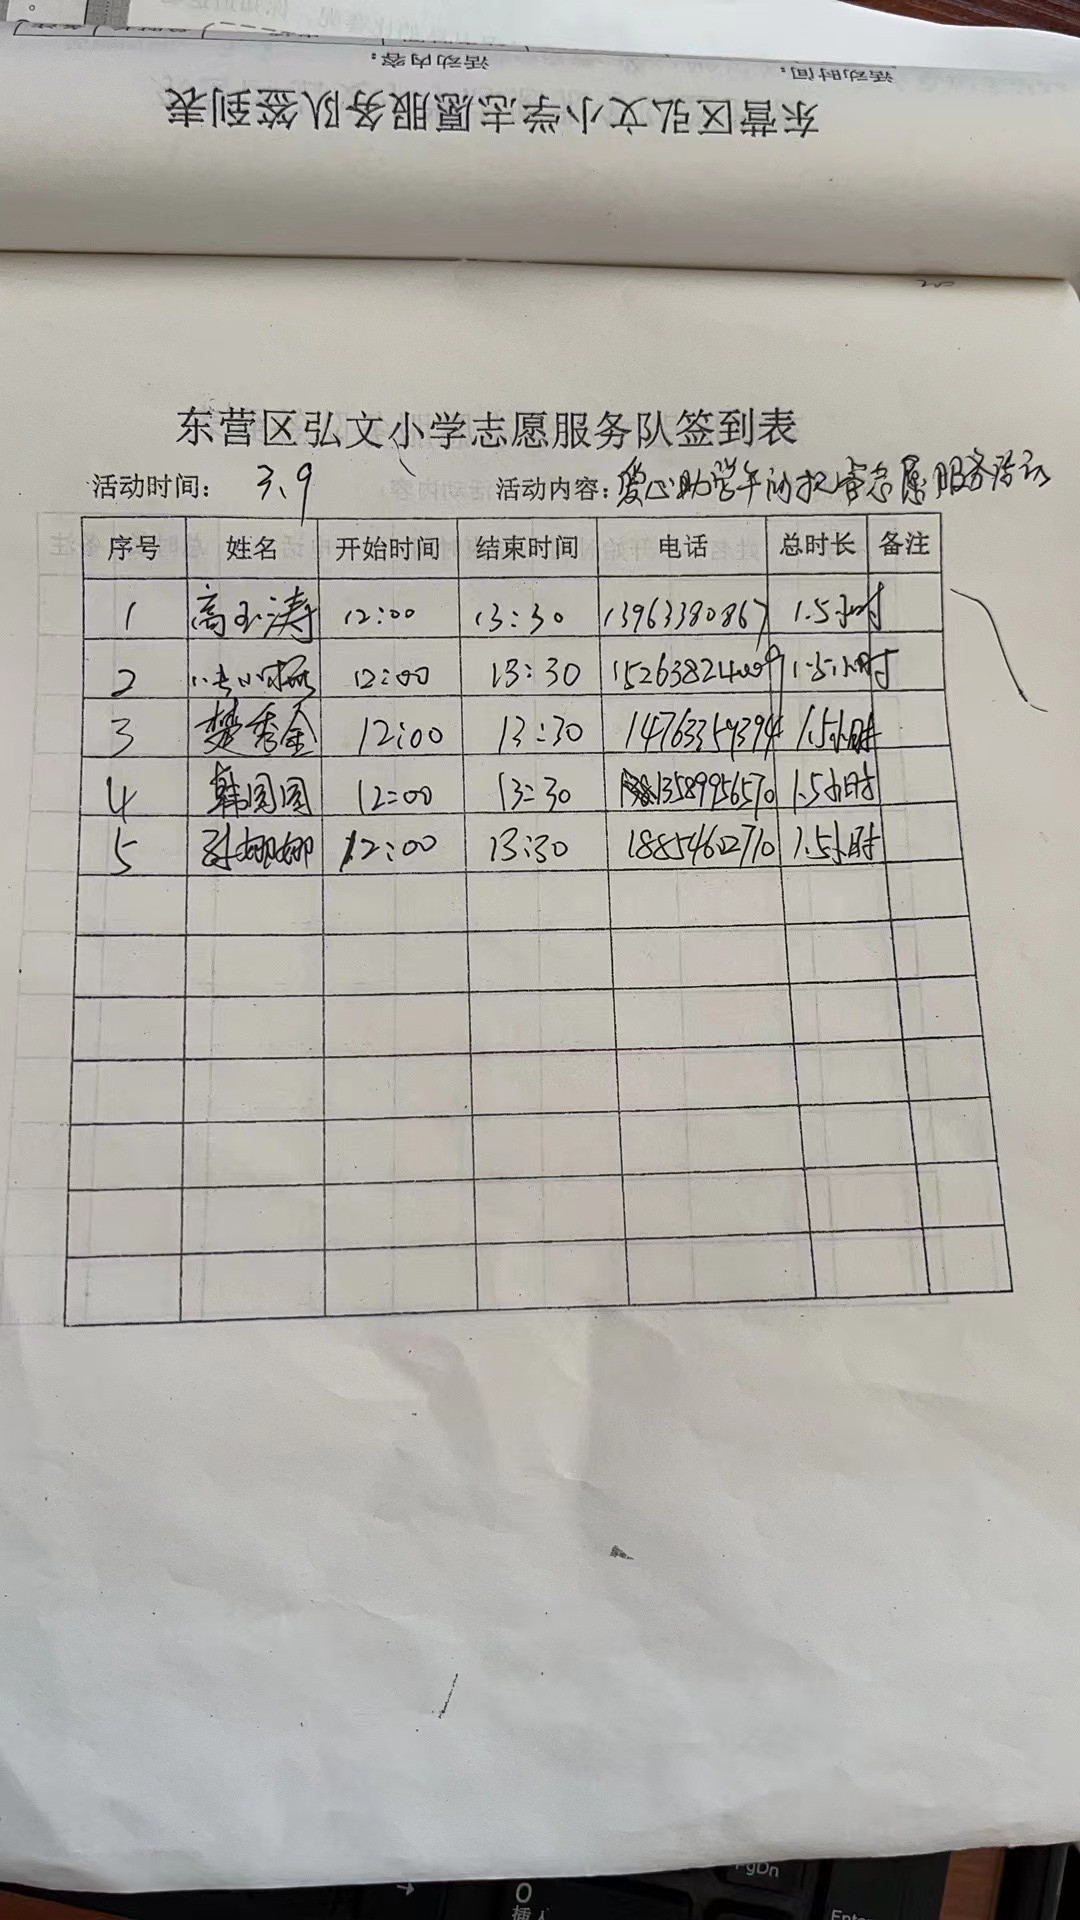 活动时间：
活动内容：
东营区弘文小学志愿服务队签到表
东营区弘文小学志愿服务队签到表
活动时间： 3.9 活动内容：爱心助学午间托管志愿服务活动
序号 姓名 开始时间 结束时间 电话 总时长 备注
1 高玉涛 12:00 13:30 13963380867 1.5小时
2 12:00 13:30 15263824009 1.5小时
3 楚秀金 12:00 13:30 14763359394 1.5小时
4 韩园园 12:00 13:30 13589956570 1.5小时
5 孙娜娜 12:00 13:30 18854602710 1.5小时
PgDn
0